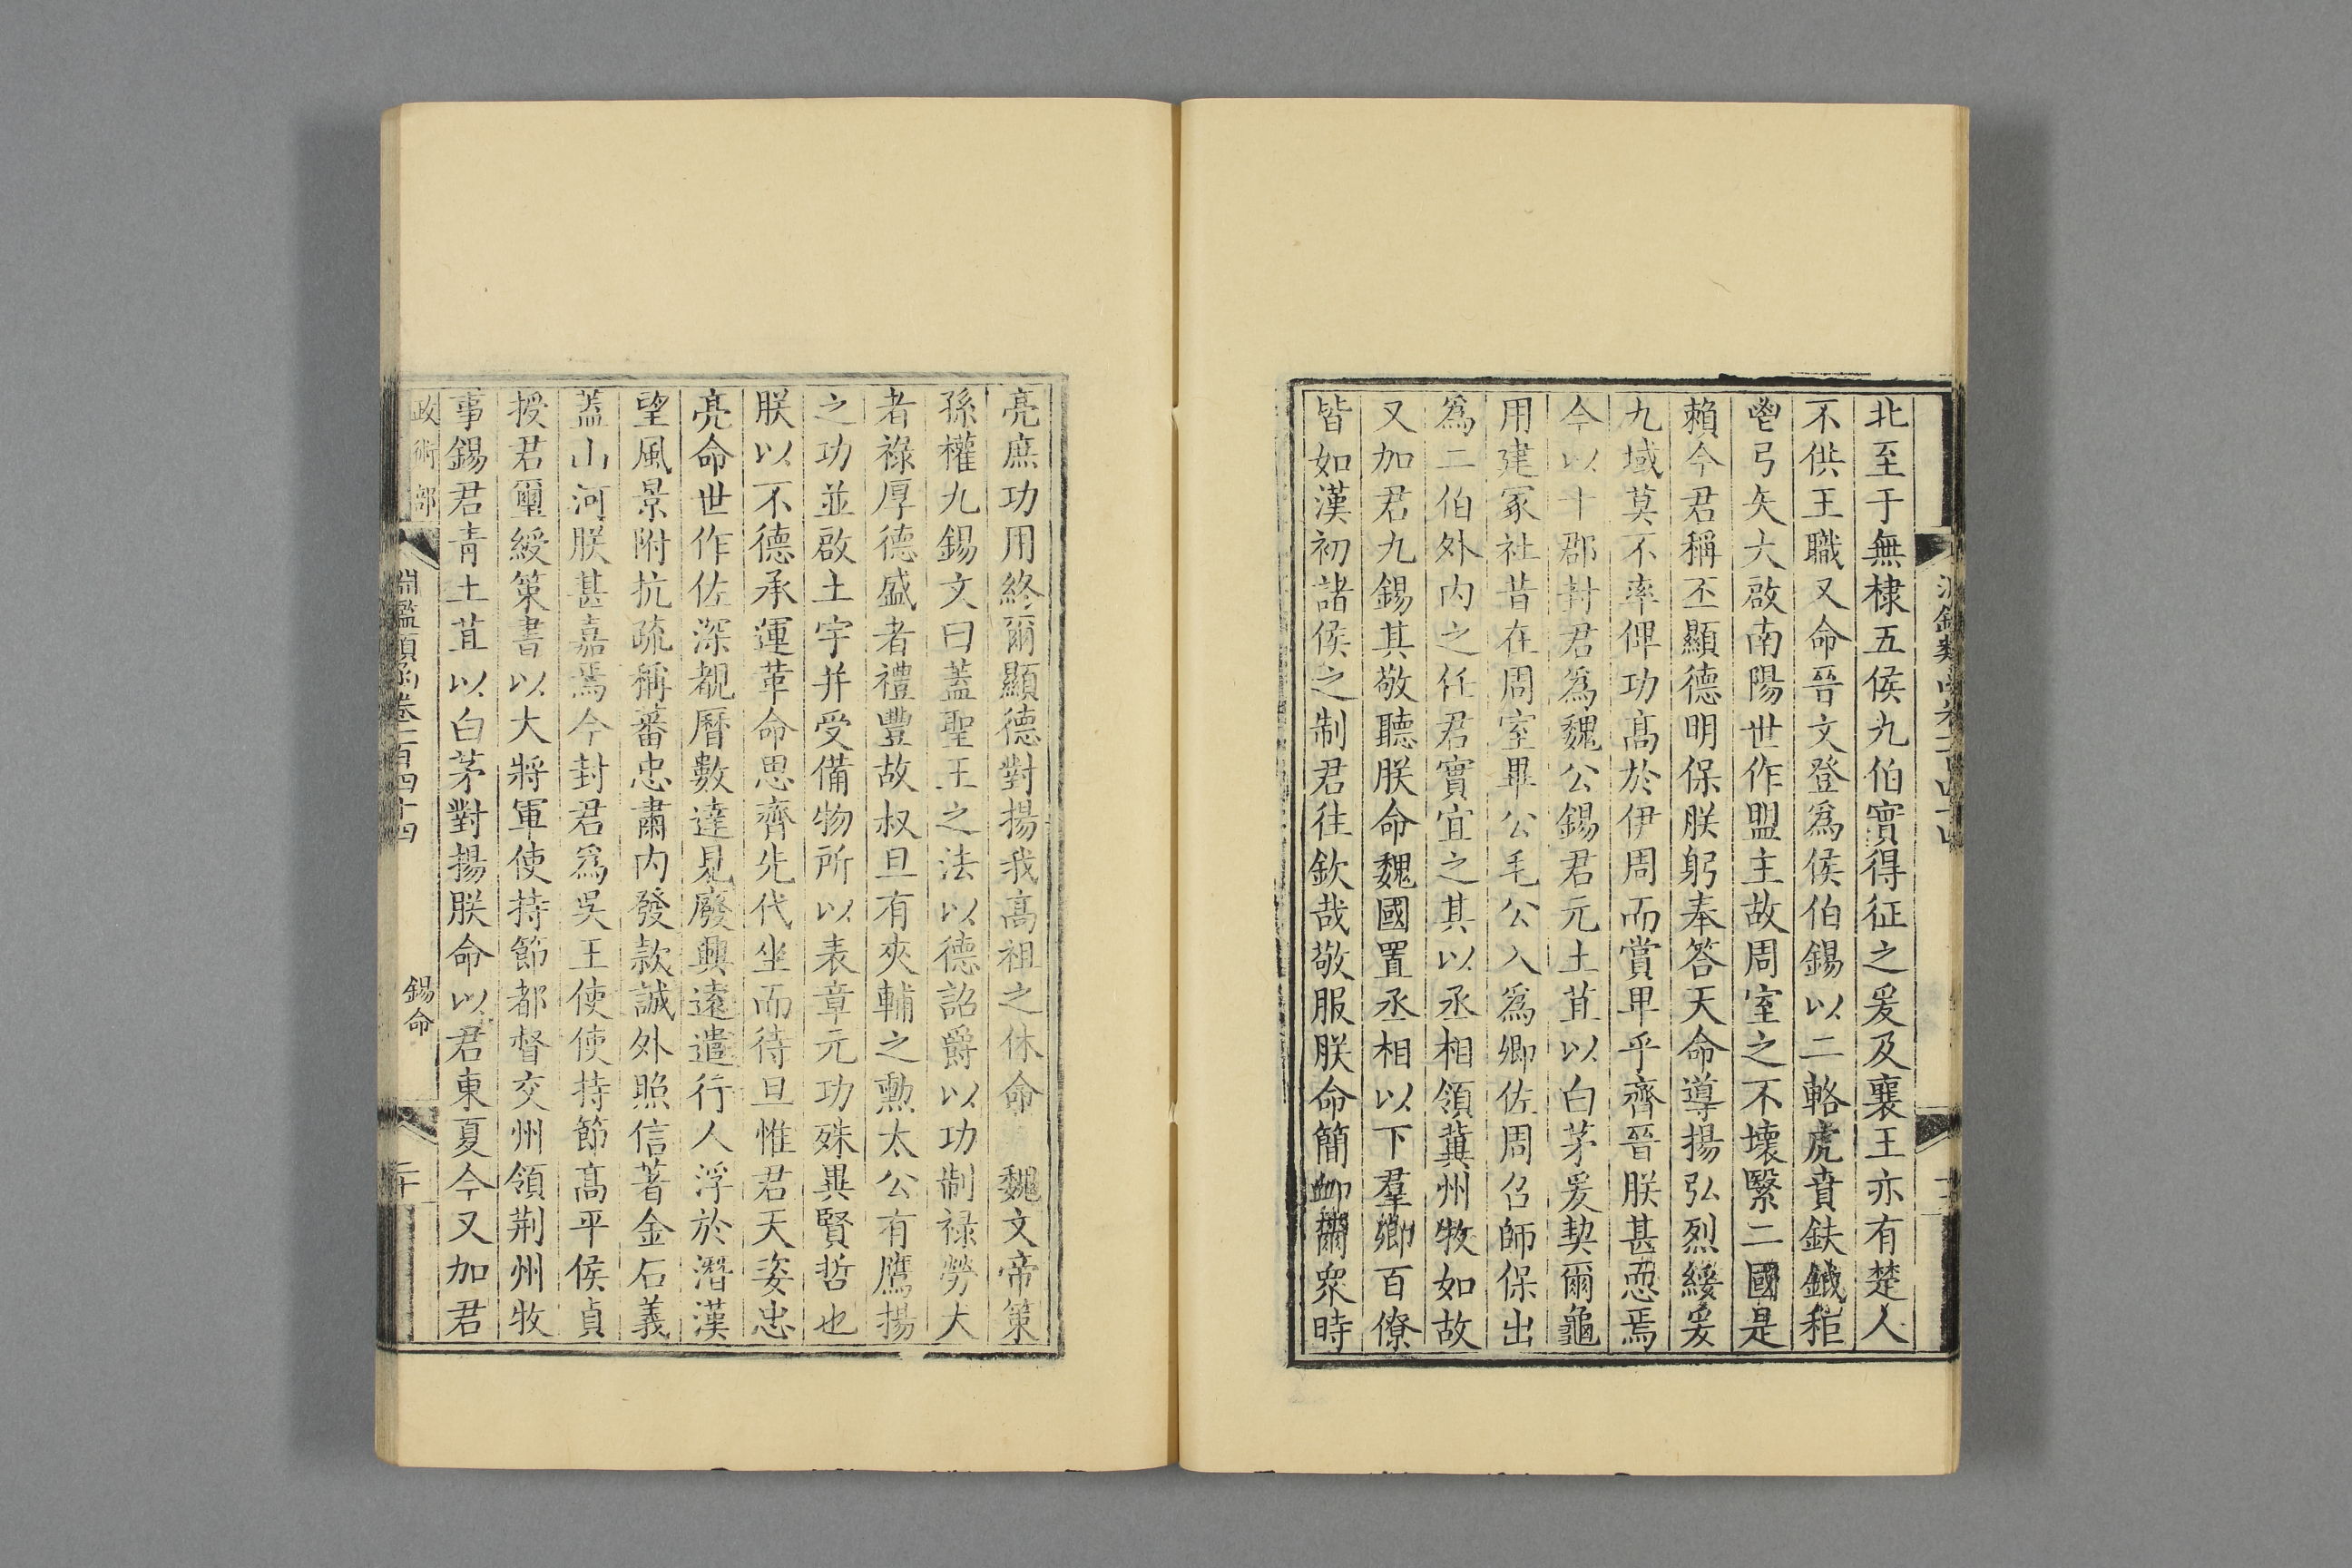 北至于無棣五侯九伯實得征之爰及襄王亦有楚人
不供王職又命晉文登爲侯伯錫以二輅虎賁鈇鉞秬
鬯弓矢大啟南陽世作盟主故周室之不壞繄二國是
賴今君稱丕顯德明保朕躬奉答天命導揚弘烈綏爰
九域莫不率俾功髙於伊周而賞卑乎齊晉朕甚恧焉
今以十郡封君爲魏公錫君元土苴以白茅爰契爾龜
用建冢社昔在周室畢公毛公入爲卿佐周召師保出
爲二伯外内之任君實宜之其以丞相領冀州牧如故
又加君九錫其敬聽朕命魏國置丞相以下羣卿百僚
皆如漢初諸侯之制君往欽哉敬服朕命簡卹爾衆時
亮庶功用終爾顯德對揚我髙祖之休命 魏文帝策
孫權九錫文曰蓋聖王之法以德詔爵以功制禄勞大
者祿厚德盛者禮豐故叔旦有夾輔之勲太公有鷹揚
之功並啟土宇并受備物所以表章元功殊異賢哲也
朕以不德承運革命思齊先代坐而待旦惟君天姿忠
亮命世作佐深覩曆數達見廢興遠遣行人浮於潛漢
望風景附抗疏稱蕃忠肅内發款誠外照信著金石義
蓋山河朕甚嘉焉今封君爲吳王使使持節髙平侯貞
授君璽綬策書以大將軍使持節都督交州領荆州牧
事錫君青土苴以白茅對揚朕命以君東夏今又加君
政術部 淵鑑類函卷二百四十四 錫命 二十